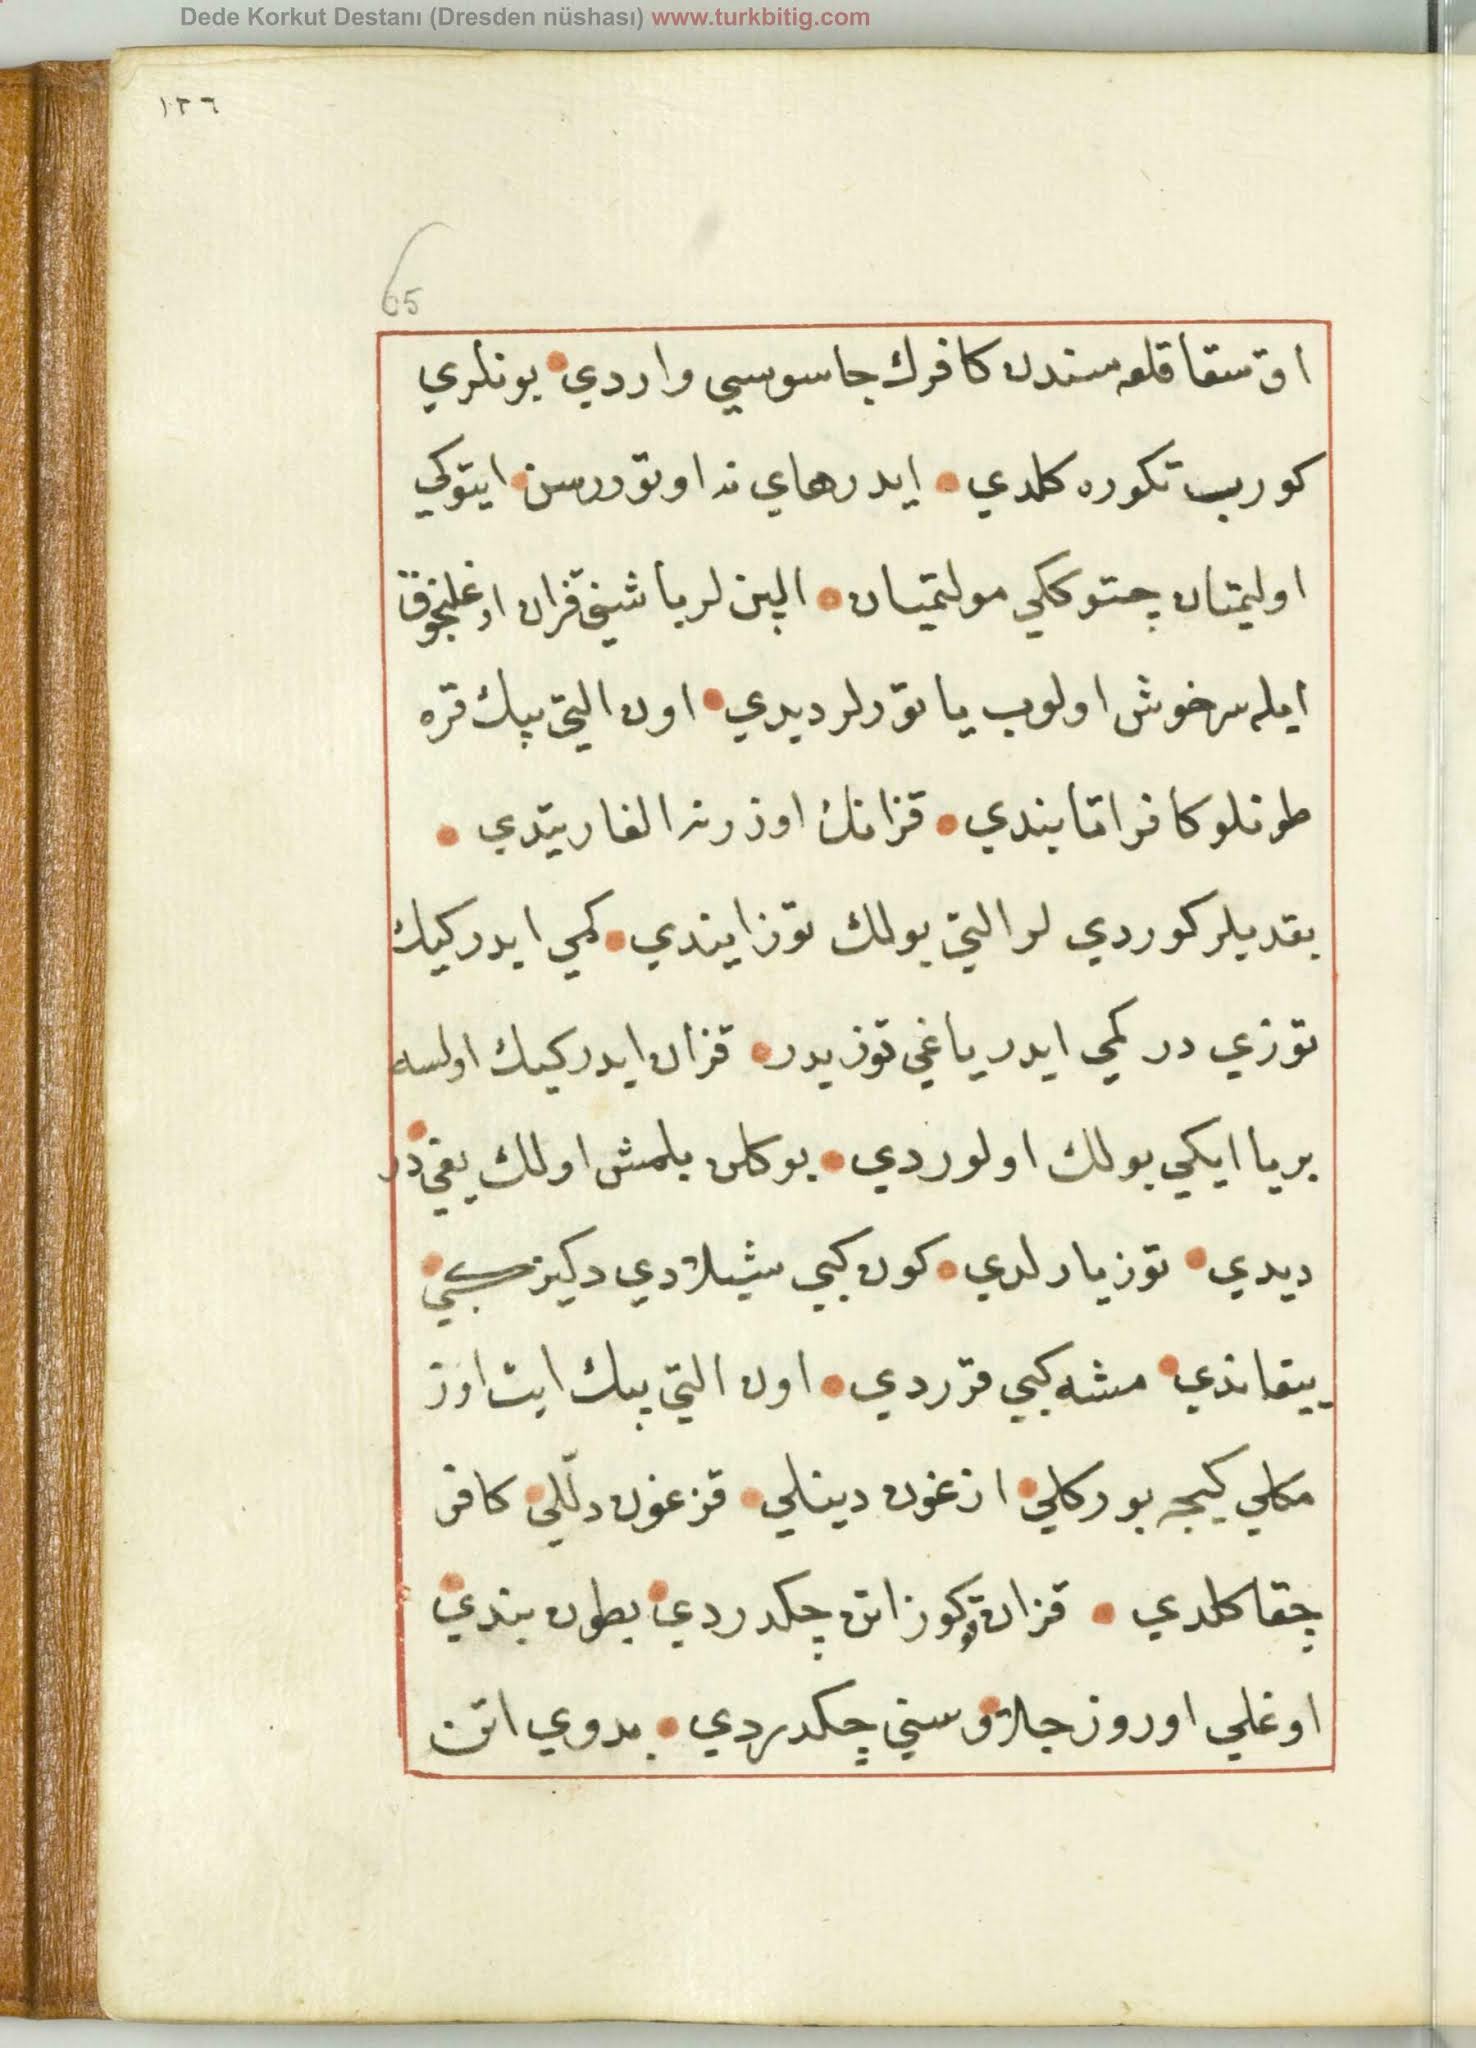 Dede Korkut Destanı (Dresden nüshası) www.turkbitig.com
١٢٦
65
اق سقا قلعه سندن كافرك جاسوسي واردي بونلري
كورب تكوره كلدي ايدر هاي نه اوتوررسن ايتوكي
اوليتمان چتوككي مولتميان الپنلر باشي قزان اوغلنجوق
ايله سرخوش اولوب ياتورلر ديدي اون التي بيك قره
طونلو كافر اتا بندي قزانك اوزرنه الغار يتدي
بقديلر كوردي لر التي بولك توز ايندي كمي ايدر كيك
توزي در كمي ايدر ياغي توزيدر قزان ايدر كيك اولسه
بر يا ايكي بولك اولوردي بو كلن بلمش اولك يغي در
ديدي توز يارلدي كون كبي شيلادي دكيز كبي
ييقاندي مشه كبي قرردي اون التي بيك ايت اوز
مكلي كيجه بوركلي ازغون دينلي قزغون دللي كافر
چقا كلدي قزان قوكور اتن چكدردي بطون بندي
اوغلي اوروز جلاوسني چكدردي بدوي اتن